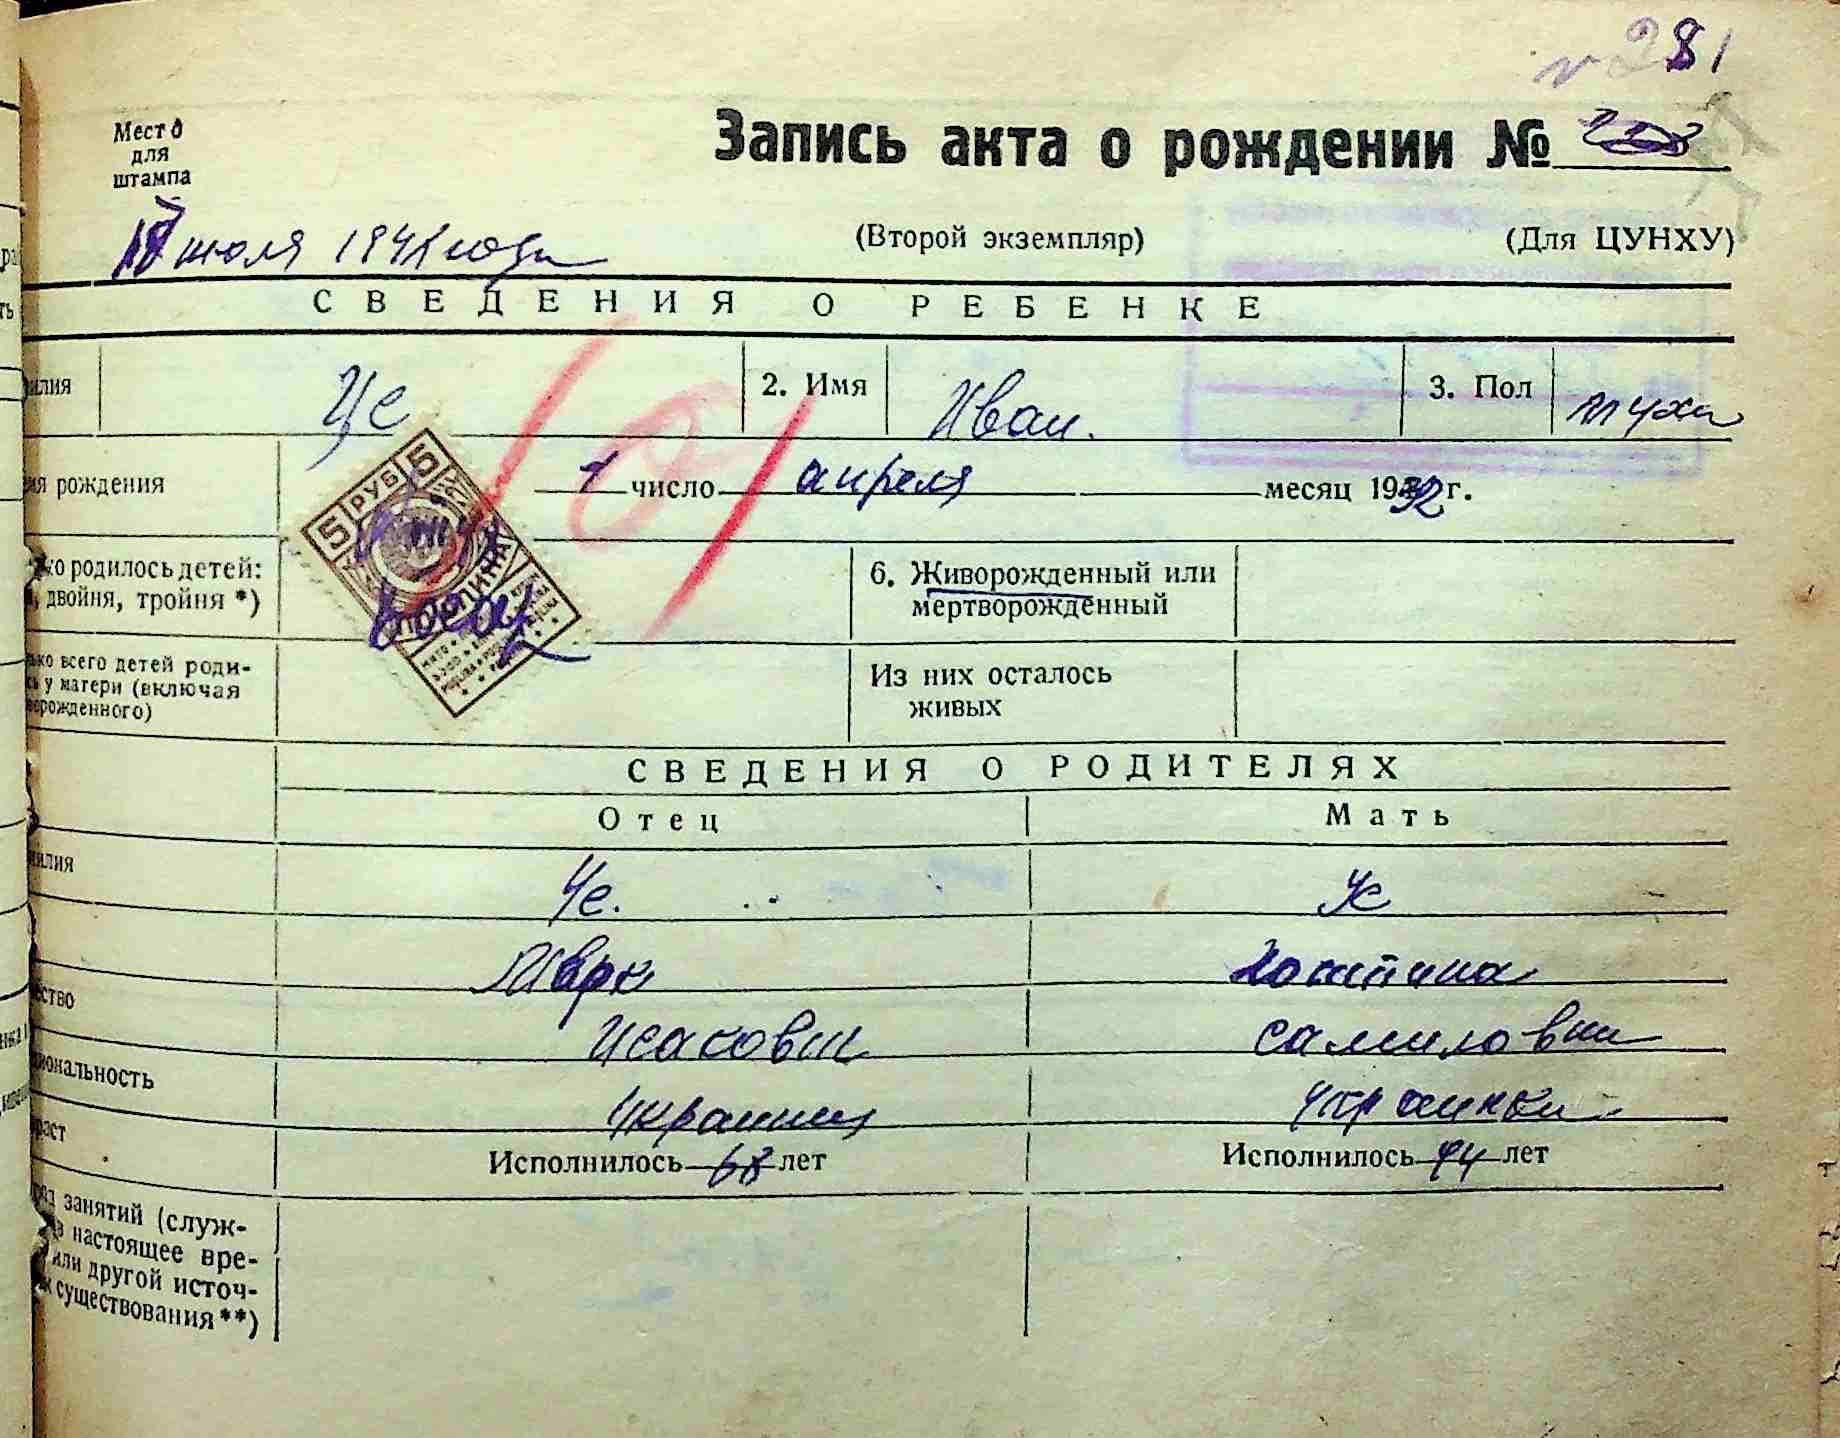 281
Место
для
штампа
Запись акта о рождении №
июля 1941 года
(Второй экземпляр) (Для ЦУНХУ)
СВЕДЕНИЯ О РЕБЕНКЕ
илия Це 2. Имя Иван. 3. Пол мужс
мя рождения 1 число апреля месяц 1932 г.
ко родилось детей:
, двойня, тройня *)
6. Живорожденный или
мертворожденный
5 РУБ 5
лько всего детей роди-
сь у матери (включая
ворожденного)
Из них осталось
живых
СВЕДЕНИЯ О РОДИТЕЛЯХ
Отец Мать
милия Це.
Марк
ество Исакович Самиловна
циональность Украинец Украинка
раст Исполнилось 68 лет Исполнилось 44 лет
род занятий (служ-
в настоящее вре-
или другой источ-
к существования **)